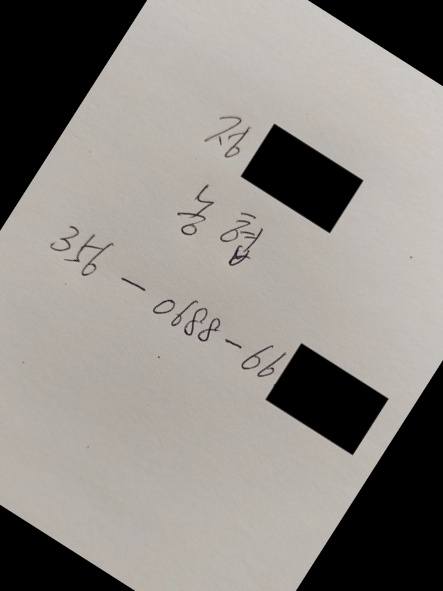 정
농협
356 - 0688 - 99